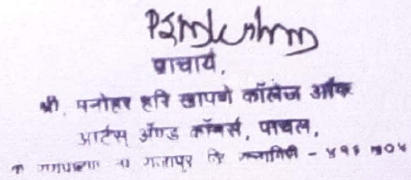 प्राचार्य,
श्री. मनोहर हरि खापणे कॉलेज ऑफ
आर्टस् ॲण्ड कॉमर्स, पाचल,
ता राजापूर जि रत्नागिरी - ४१६ ७०४